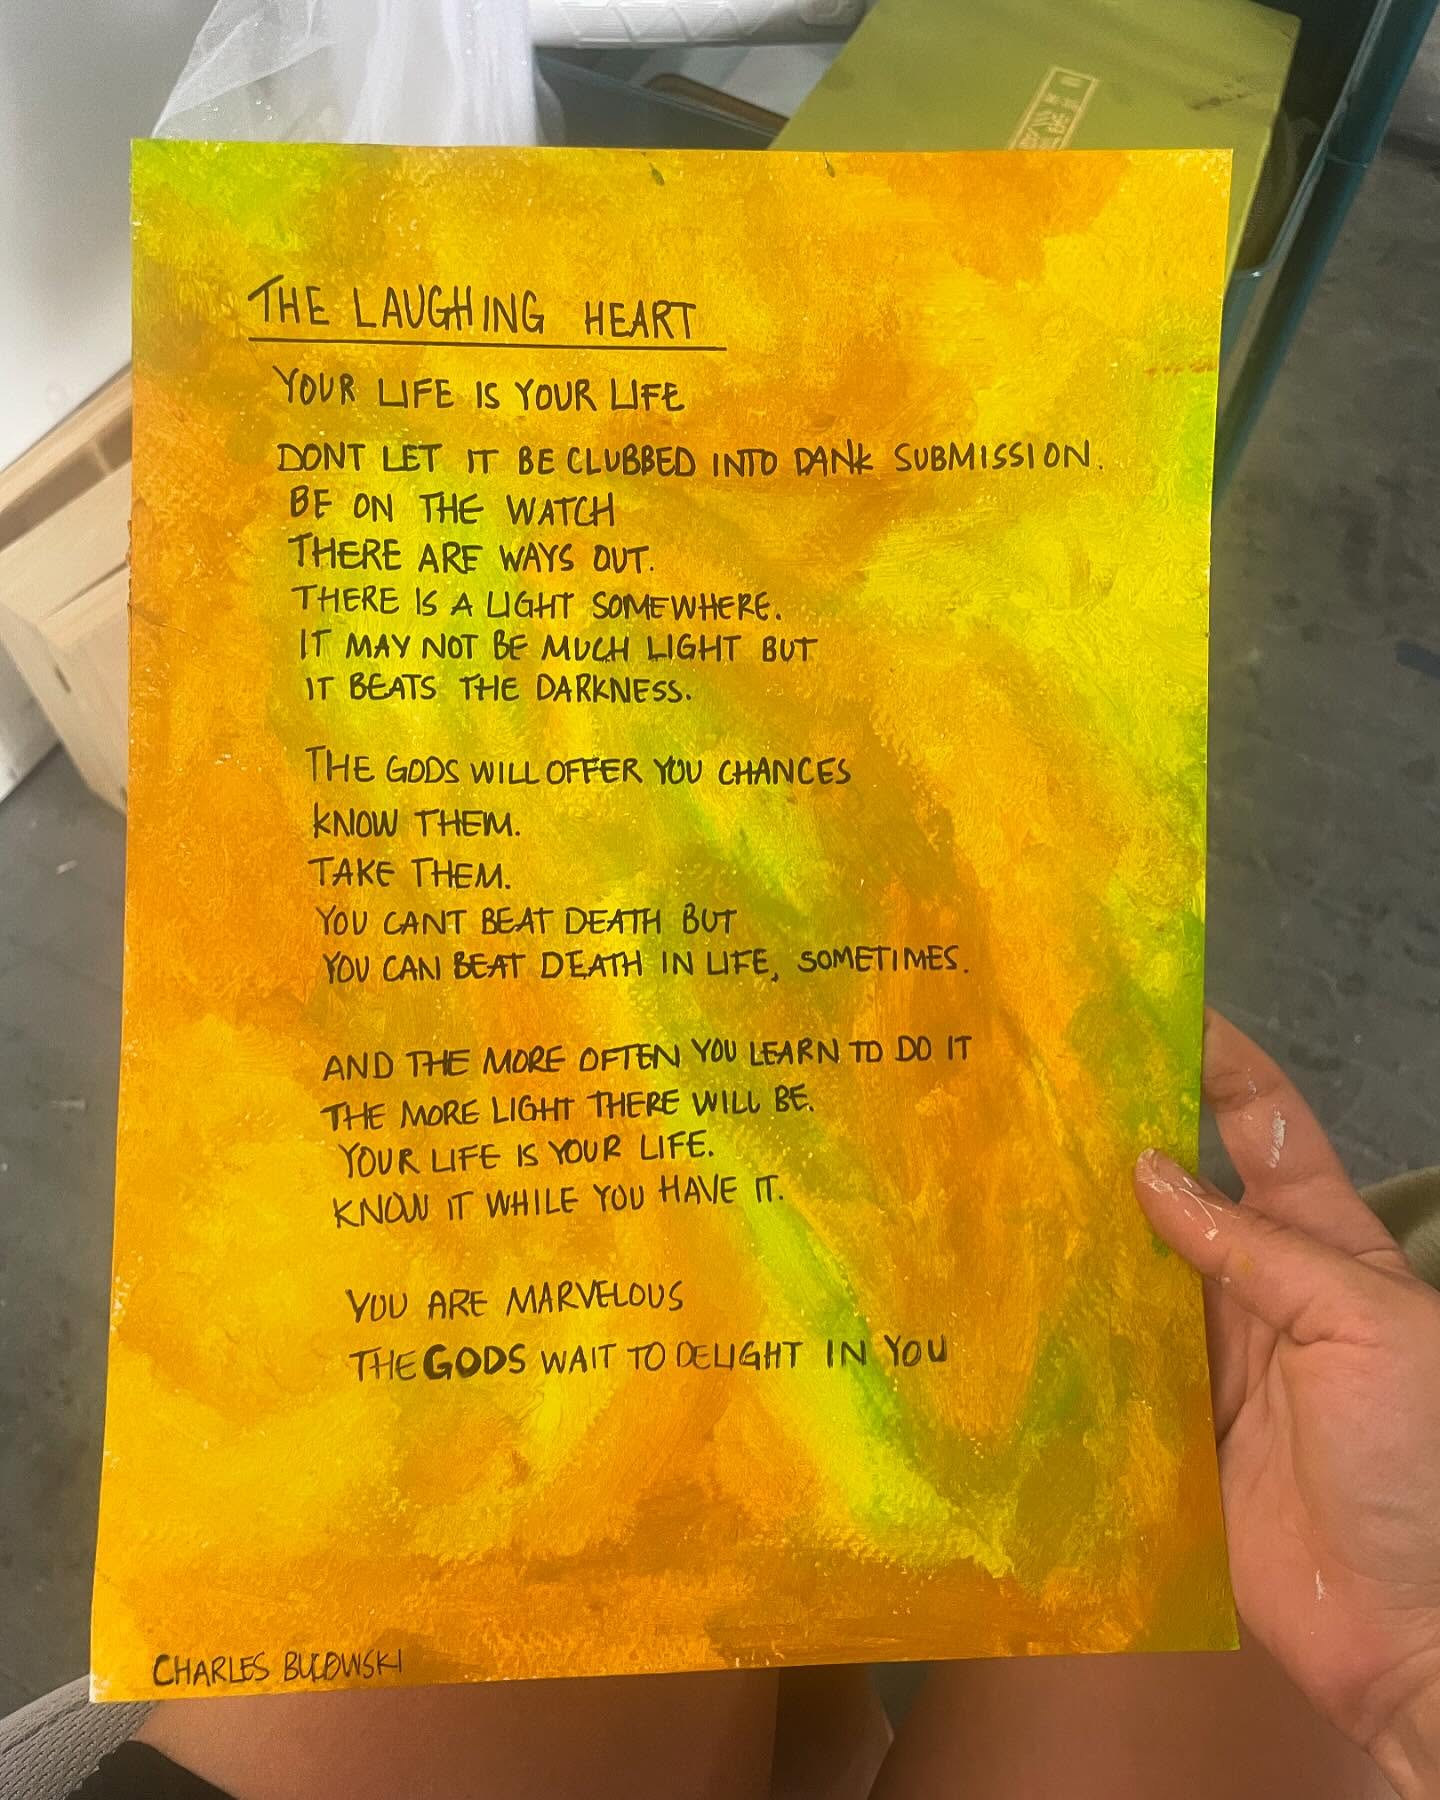 THE LAUGHING HEART
YOUR LIFE IS YOUR LIFE
DONT LET IT BE CLUBBED INTO DANK SUBMISSION.
BE ON THE WATCH
THERE ARE WAYS OUT.
THERE IS A LIGHT SOMEWHERE.
IT MAY NOT BE MUCH LIGHT BUT
IT BEATS THE DARKNESS.
THE GODS WILL OFFER YOU CHANCES
KNOW THEM.
TAKE THEM.
YOU CANT BEAT DEATH BUT
YOU CAN BEAT DEATH IN LIFE, SOMETIMES.
AND THE MORE OFTEN YOU LEARN TO DO IT
THE MORE LIGHT THERE WILL BE.
YOUR LIFE IS YOUR LIFE.
KNOW IT WHILE YOU HAVE IT.
YOU ARE MARVELOUS
THE GODS WAIT TO DELIGHT IN YOU
CHARLES BUCOWSKI